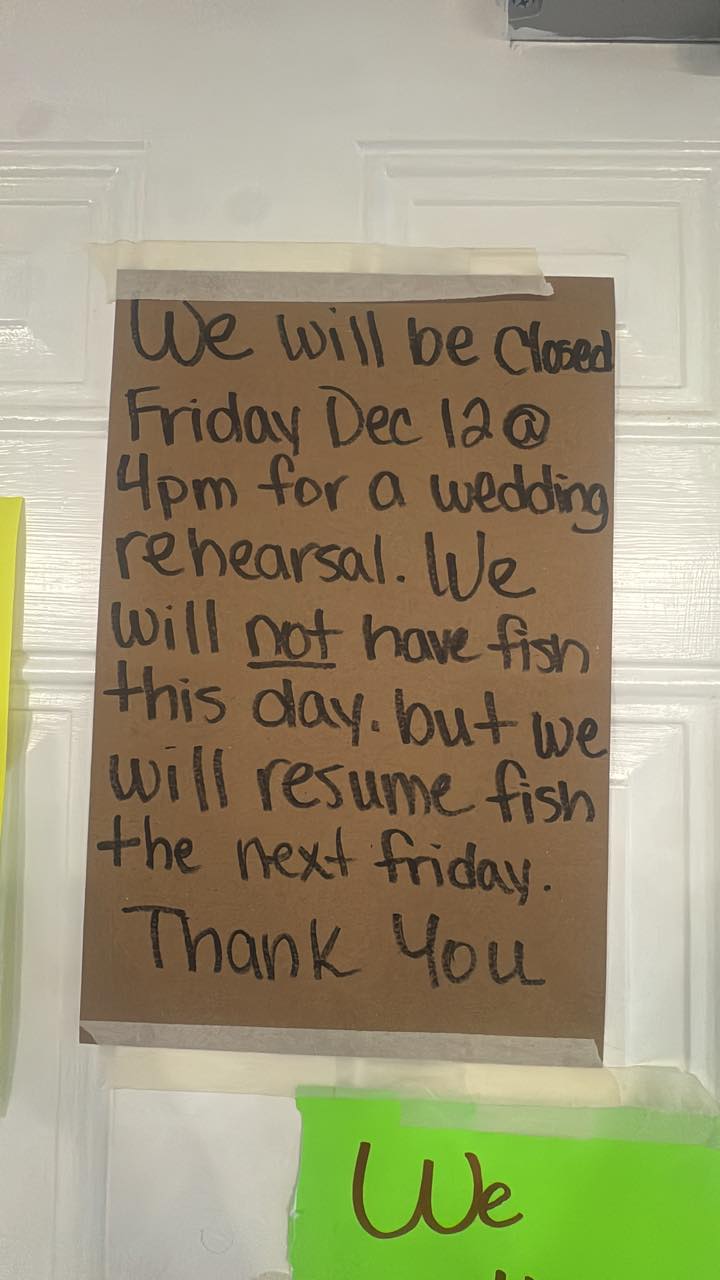 We will be Closed
Friday Dec 12 @
4pm for a wedding
rehearsal. We
will not have fish
this day. but we
will resume fish
the next friday.
Thank You
We